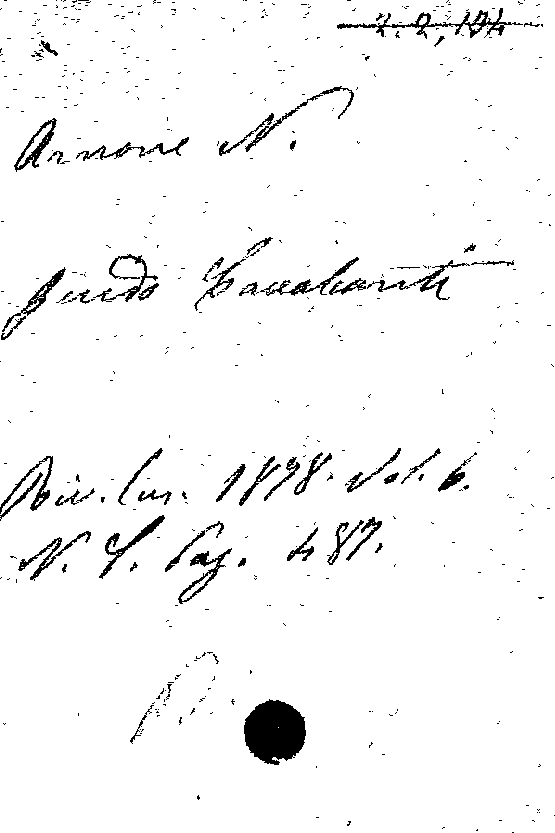 2.2,194
Arnone N.
Guido Cavalcanti
Riv. Eur. 1878. Vol. 6.
N. S. Pag. 487.